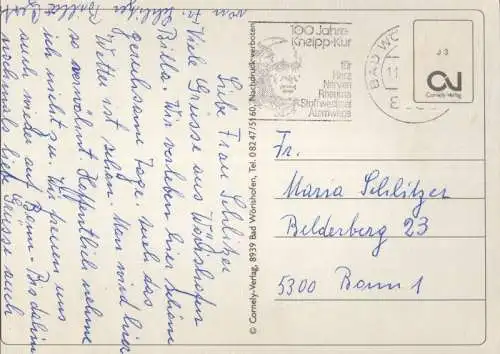 Liebe Frau Schlitzer
Viele Grüsse aus Wörishofen
Billa. Wir verleben hier schöne
geruhsame Tage. Auch das
Wetter ist schön. Man wird hier
so verwöhnt. Hoffentlich nehme
ich nicht zu. Wir freuen uns
auch wieder auf Bonn. Bis dahin
nochmals liebe Grüsse auch
von Fr. Schlitzer
© Cornely-Verlag, 8939 Bad Wörishofen, Tel. 08247/5160, Nachdruck verboten
100 Jahre
Kneipp-Kur
für
Herz
Nerven
Rheuma
Stoffwechsel
Atemwege
BAD WÖ
J 3
Cornely-Verlag
Fr.
Maria Schlitzer
Belderberg 23
5300 Bonn 1